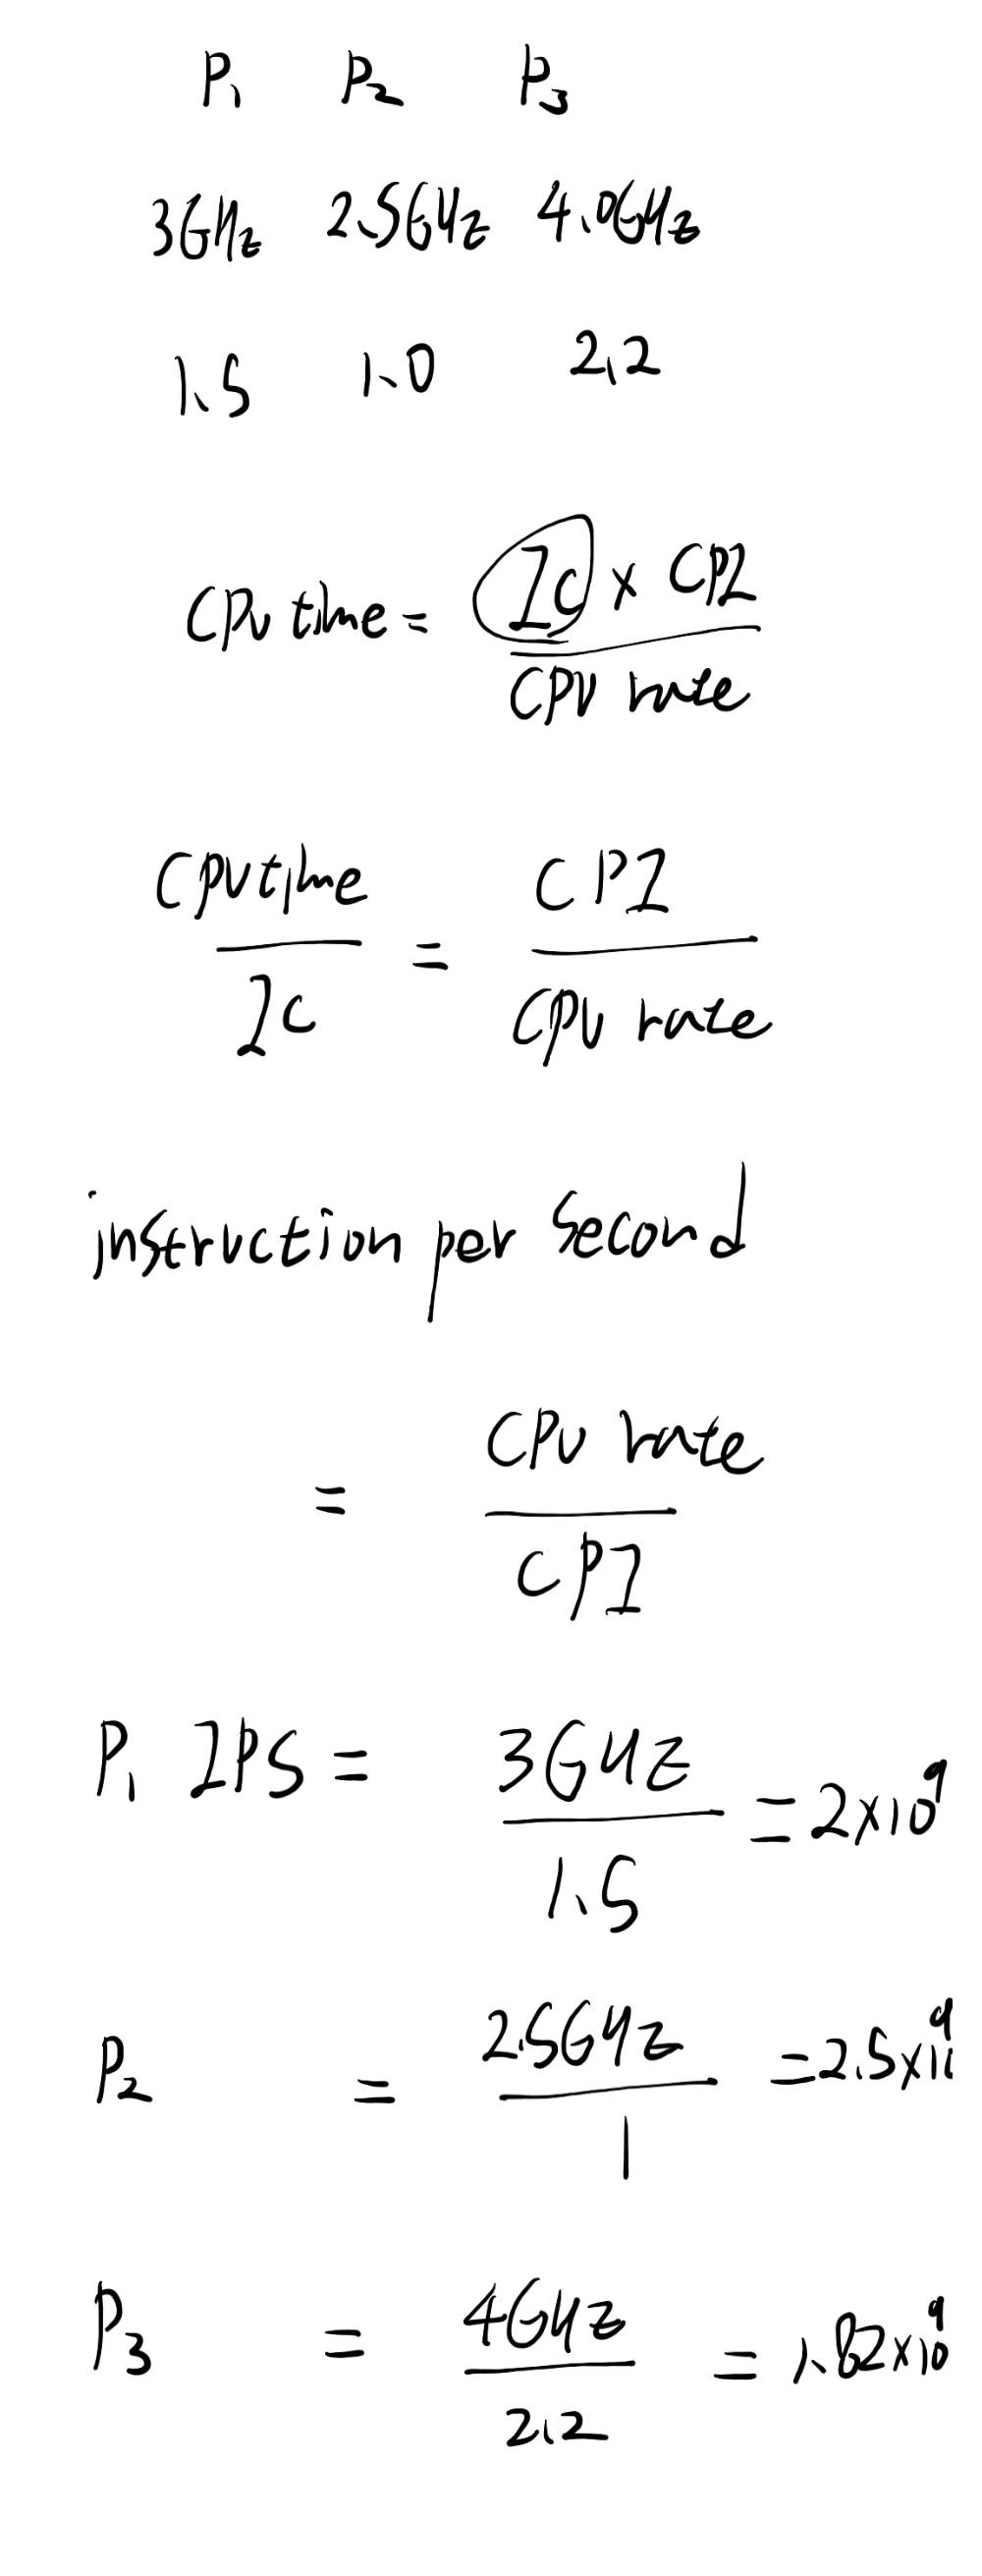 P₁ P₂ P₃
3GHz 2.5GHz 4.0GHz
1.5 1.0 2.2
CPU time = Ic × CPI
CPU rate
CPU time = CPI
Ic CPU rate
instruction per second
= CPU rate
CPI
P₁ IPS = 3GHz = 2×10⁹
1.5
P₂ = 2.5GHz = 2.5×10⁹
1
P₃ = 4GHz = 1.82×10⁹
2.2